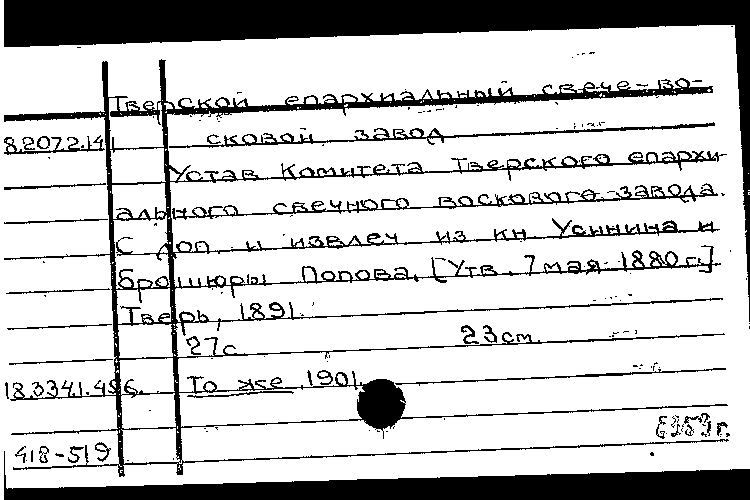 Тверской епархиальный свече-во-
8.207.2.141 сковой завод
Устав Комитета Тверского епархи-
ального свечного воскового завода.
С доп. и извлеч. из кн. Усинина и
брошюры Попова. [Утв. 7 мая 1880 г.]
Тверь, 1891.
27с. 23см.
18.334.1.496. То же, 1901.
418-519